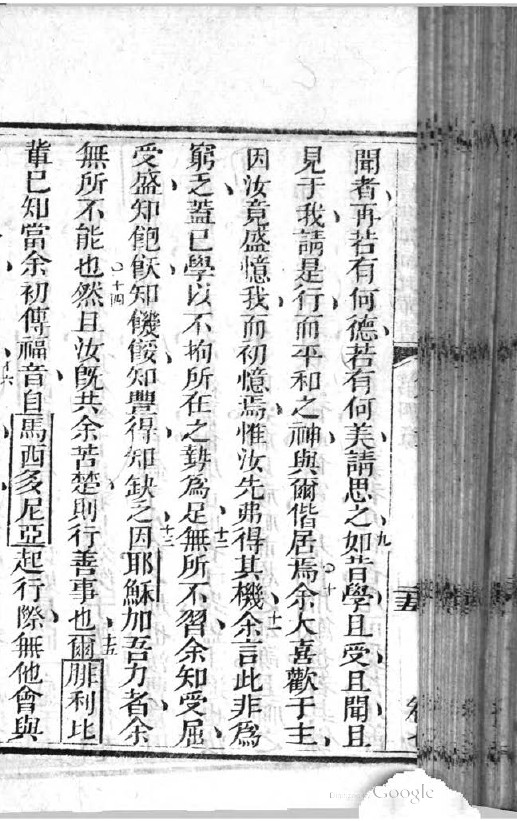 聞者再若有何德若有何美請思之九如昔學且受且聞且
見于我請是行而平和之神與爾偕居焉十余大喜歡于主
因汝竟盛憶我而初憶焉惟汝先弗得其機十一余言此非為
窮乏蓋已學以不拘所在之勢為足十二無所不習余知受屈
受盛知飽飫知饑餒知豐得知缺之十三因耶穌加吾力者余
無所不能也十四然且汝既共余苦楚則行善事也十五爾腓利比
輩已知當余初傳福音自馬西多尼亞起行際無他會與
十六
五
Google